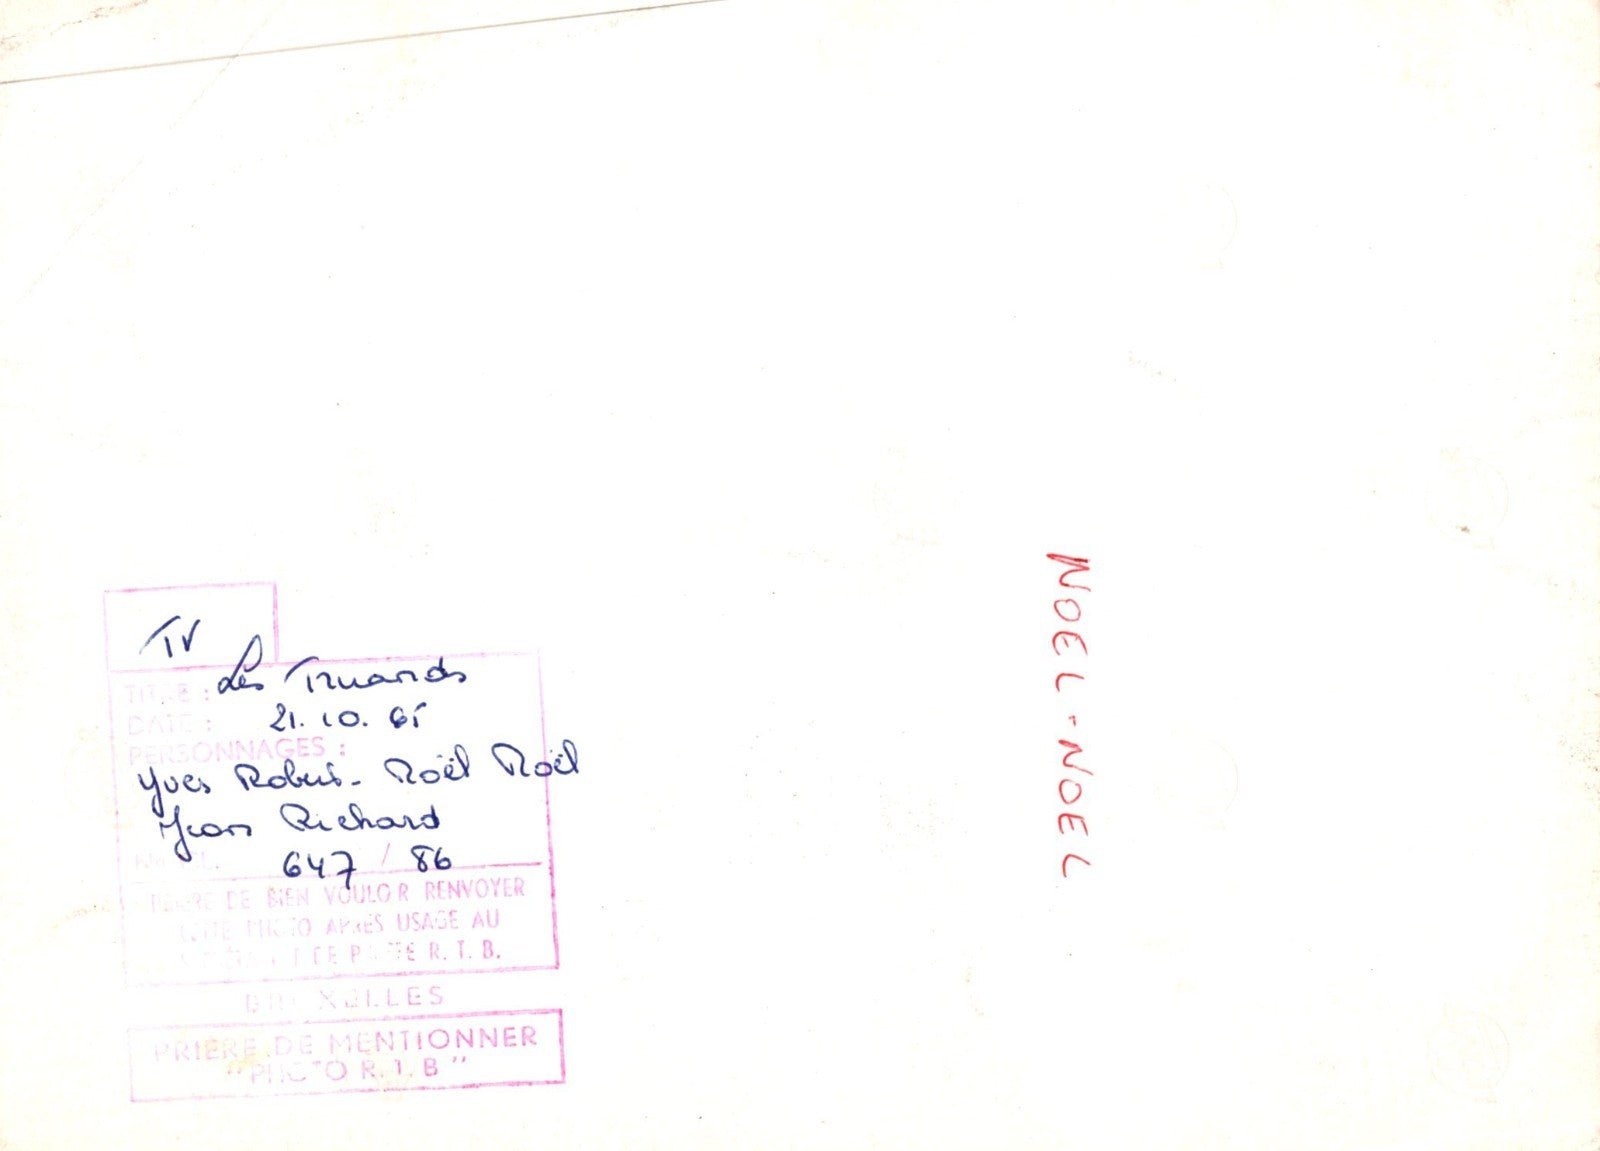 TV
TITRE : Les Truands
DATE : 21. 10. 65
PERSONNAGES :
Yves Robert - Noël Noël
Jean Richard
647 / 86
PRIERE DE BIEN VOULOIR RENVOYER
CETTE PHOTO APRES USAGE AU
DE R. T. B.
BRUXELLES
PRIERE DE MENTIONNER
"PHOTO R. T. B"
NOEL - NOEL